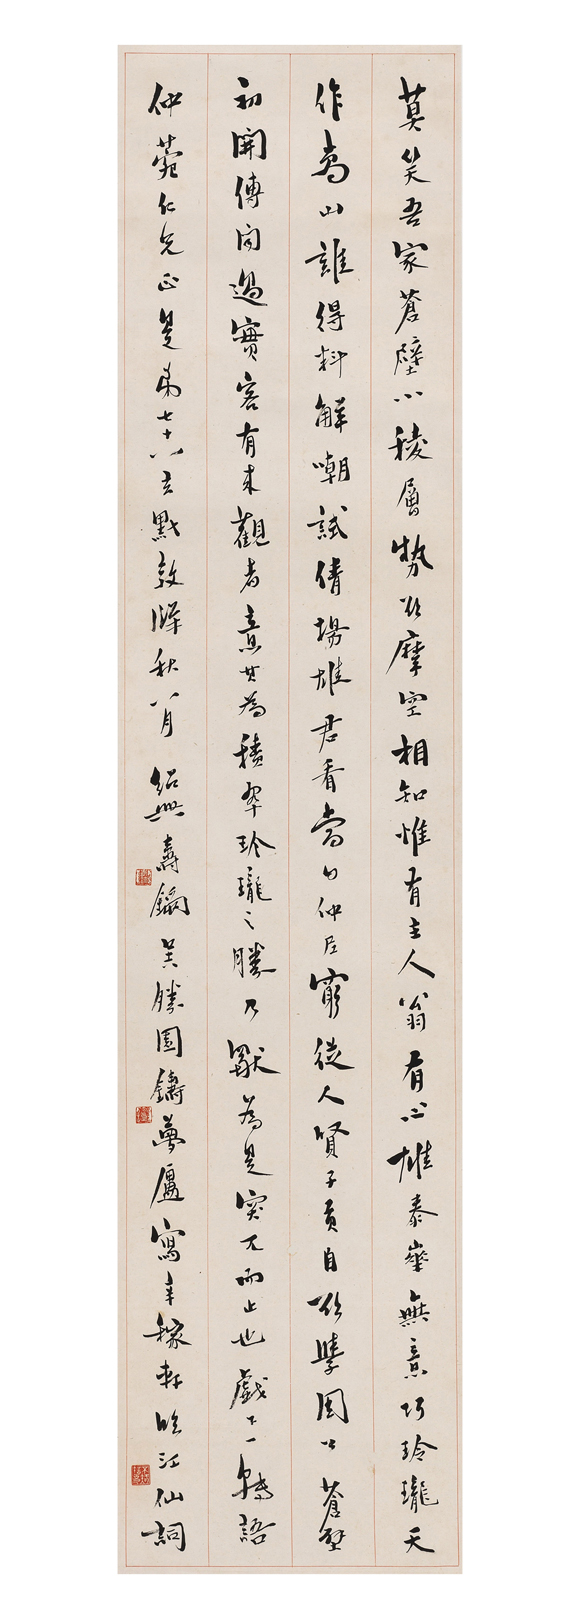 莫笑吾家蒼壁小稜層勢欲摩空相知惟有主人翁有心雄泰華無意巧玲瓏天
作高山誰得料解嘲試倩揚雄君看當日仲尼窮從人賢子貢自欲學周公蒼壁
初開傳聞過實客有來觀者意其為積翠玲瓏之勝乃獸為是突兀而止也戲下一轉語
仲仁兄正是弟七十六玄黓敦牂秋八月 紹興壽鑈勝園鑄夢廬寫辛稼軒臨江仙詞